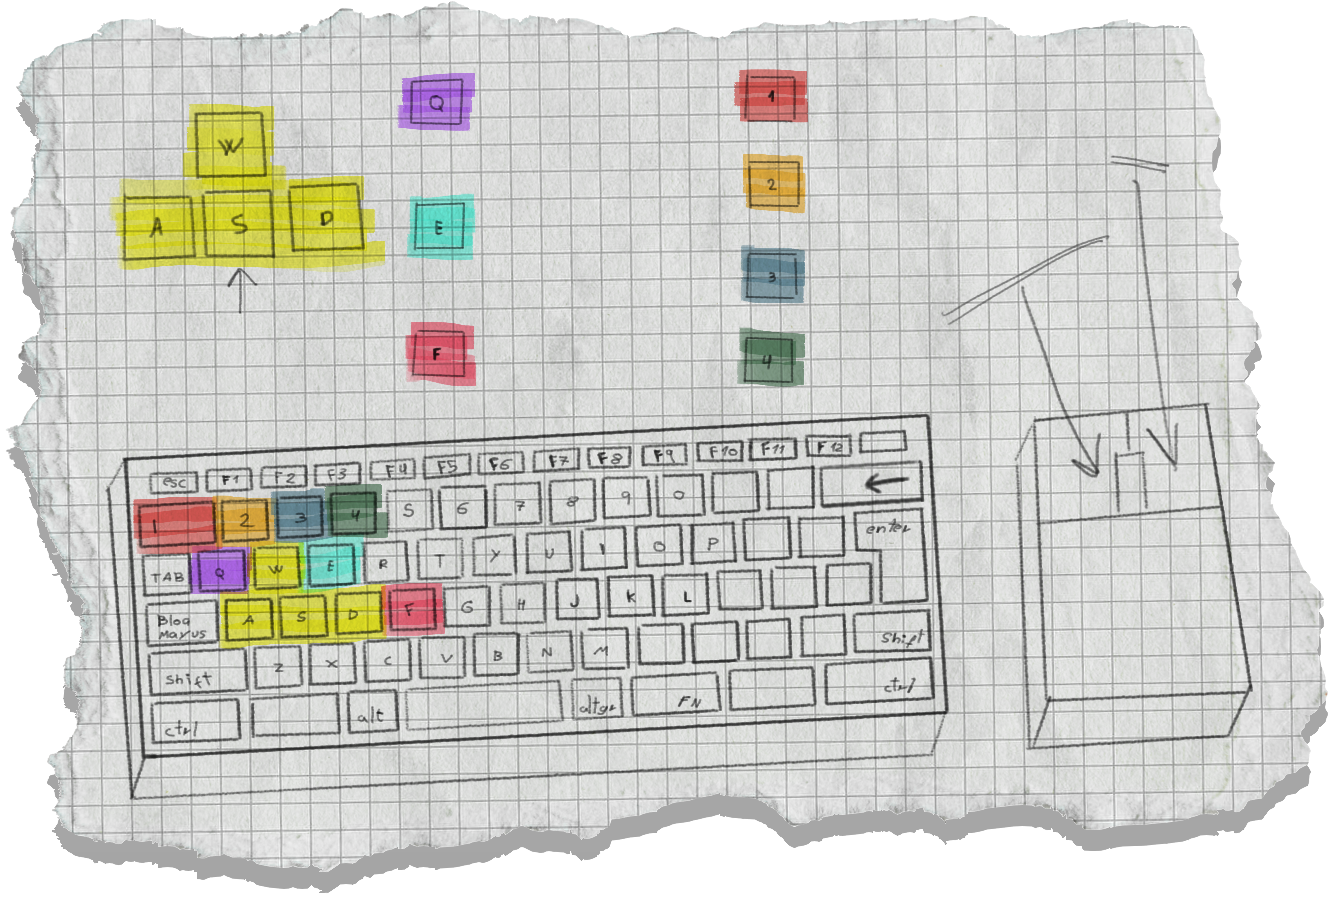 Q
1
W
2
A S D
E
3
F
4
esc F1 F2 F3 F4 F5 F6 F7 F8 F9 F10 F11 F12
1 2 3 4 5 6 7 8 9 0 ←
TAB Q W E R T Y U I O P enter
Bloq
Mayus A S D F G H J K L
shift Z X C V B N M shift
ctrl alt altgr FN ctrl